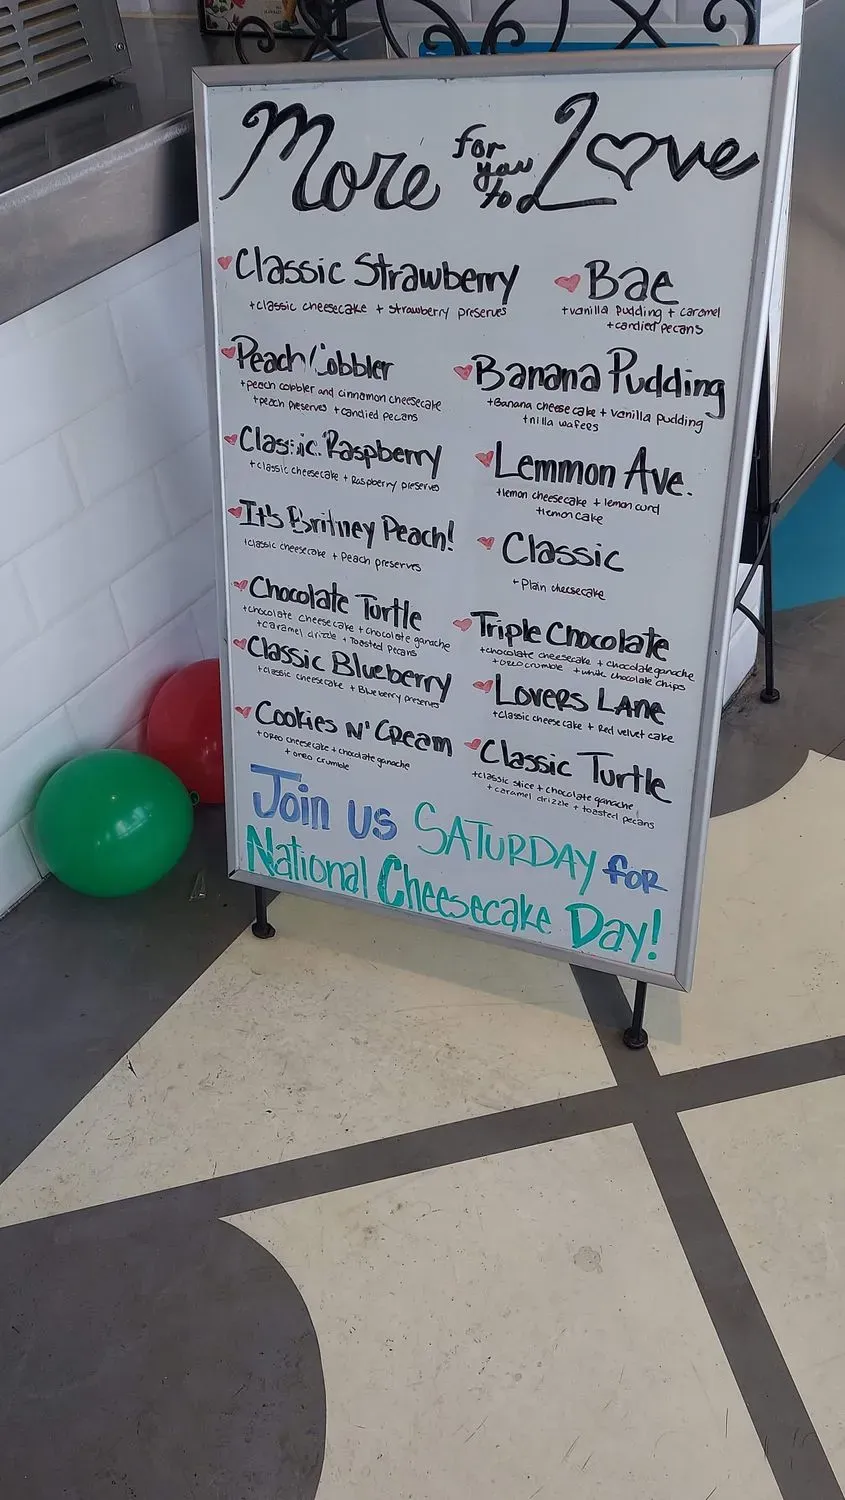 More for you to Love
Classic Strawberry
+classic cheesecake + strawberry preserves
Peach Cobbler
+peach cobbler and cinnamon cheesecake
+peach preserves +candied pecans
Classic Raspberry
+classic cheesecake + Raspberry preserves
It's Britney Peach!
+classic cheesecake + Peach preserves
Chocolate Turtle
+chocolate cheesecake + chocolate ganache
+caramel drizzle + Toasted Pecans
Classic Blueberry
+classic cheesecake + Blueberry preserves
Cookies N' Cream
+oreo cheesecake + chocolate ganache
+ oreo crumble
Bae
+vanilla pudding + caramel
+candied pecans
Banana Pudding
+Banana cheesecake + vanilla pudding
+nilla wafers
Lemmon Ave.
+lemon cheesecake + lemon curd
+lemon cake
Classic
+Plain cheesecake
Triple Chocolate
+chocolate cheesecake + chocolate ganache
+oreo crumble +white chocolate chips
Lovers Lane
+classic cheesecake + Red velvet cake
Classic Turtle
+classic slice + chocolate ganache
+ caramel drizzle + toasted pecans
Join us SATURDAY for
National Cheesecake Day!